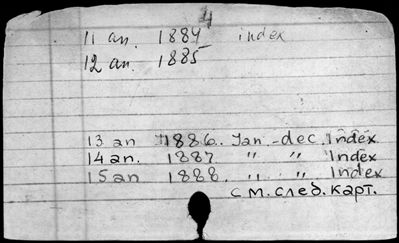 4
11 an. 1884 index
12 an. 1885
13 an 1886. Jan.-dec. Index
14 an. 1887 " " Index
15 an 1888. " " Index
см. след. карт.